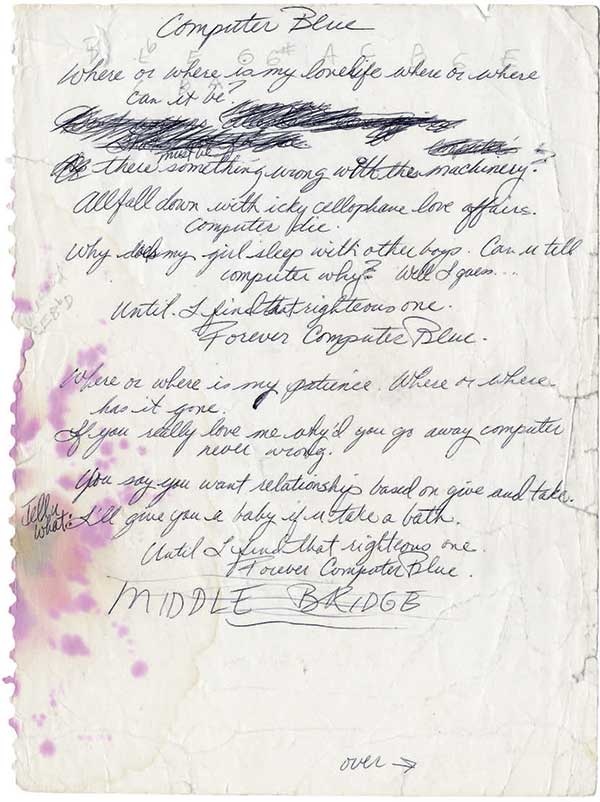 Computer Blue
Where or where is my lovelife where or where
can it be?
must be
there something wrong with the machinery?
All fall down with icky cellophane love affairs.
Computer die.
Why does my girl sleep with other boys. Can u tell
computer why? Well I guess...
Until I find that righteous one.
Forever Computer Blue.
Where or where is my patience. Where or where
has it gone.
If you really love me why'd you go away computer
never wrong.
You say you want relationship based on give and take.
Tell u
what: I'll give you a baby if u take a bath.
Until I find that righteous one.
Forever Computer Blue.
MIDDLE BRIDGE
over →